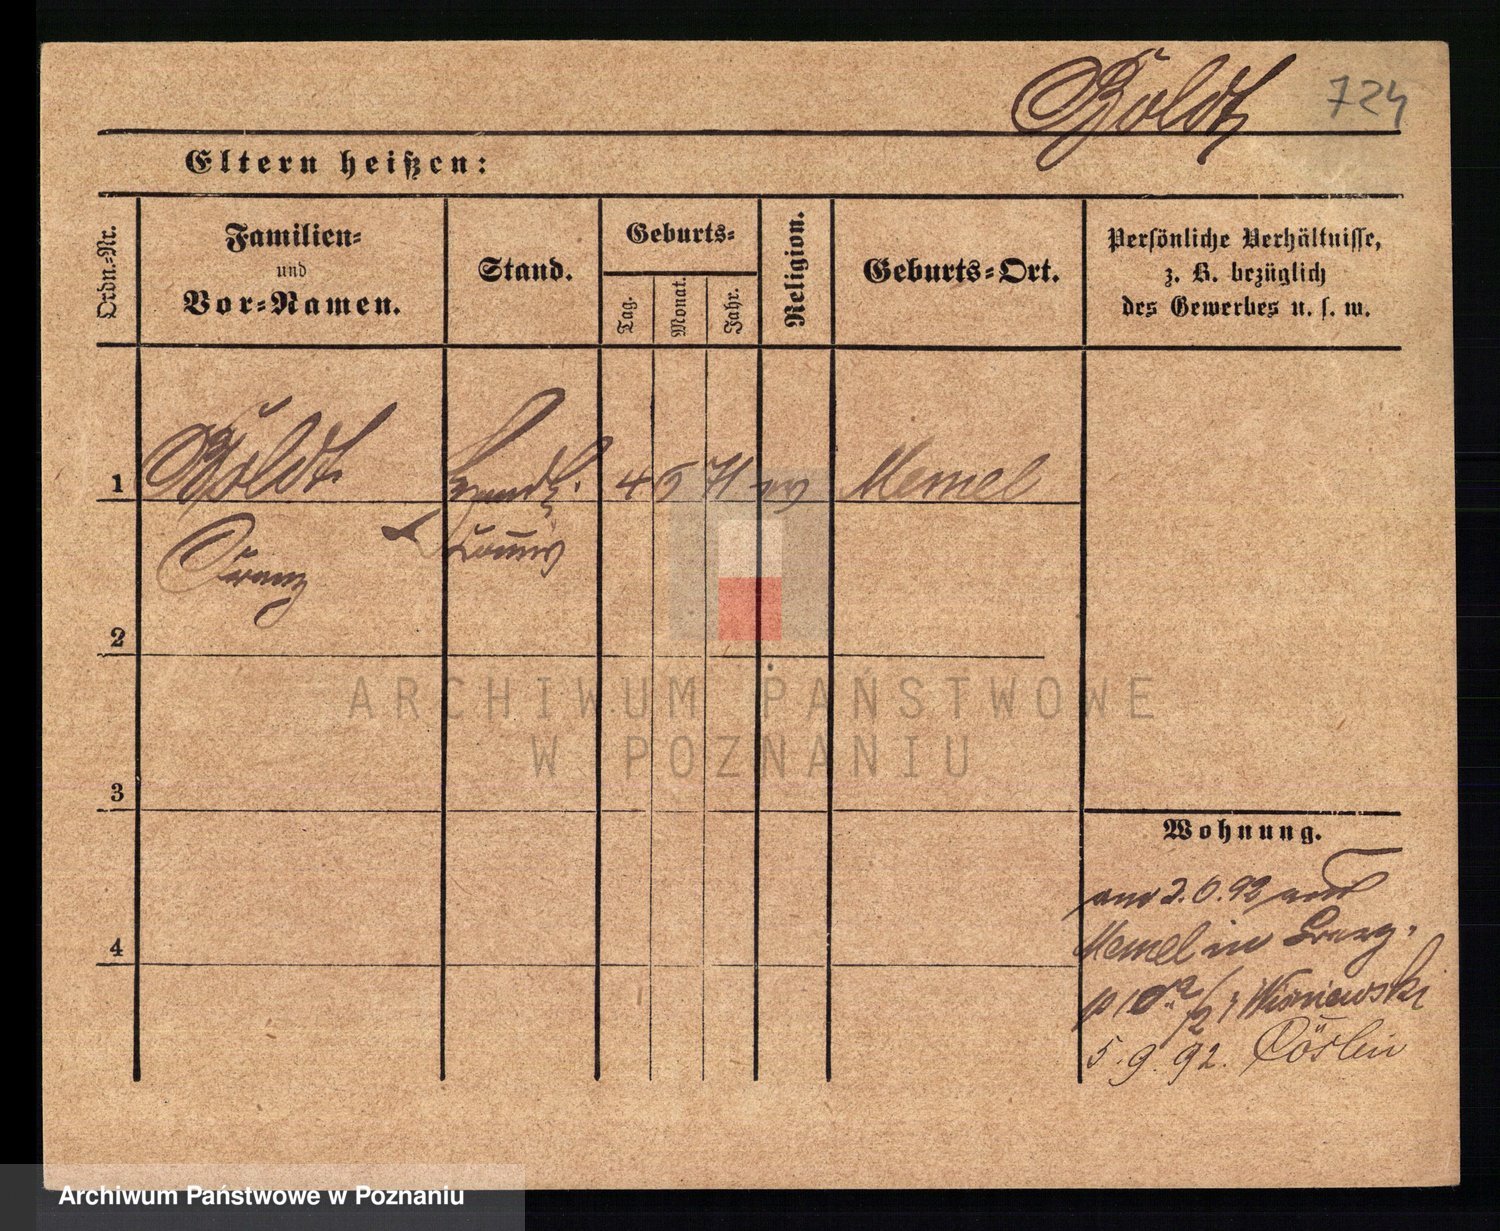 Boldt 724
Eltern heißen:
Ordn.-Nr.
Familien-
und
Vor-Namen.
Stand.
Geburts-
Tag.
Monat.
Jahr.
Religion.
Geburts-Ort.
Persönliche Verhältnisse,
z. B. bezüglich
des Gewerbes u. s. w.
1 Boldt Handl. 4 5 71 ev Memel
Franz Comis
2
3
4
Wohnung.
am 2.6.92 aus
Memel in
Wisniewski
5.9.92. Cöslin
ARCHIWUM PAŃSTWOWE
W POZNANIU
Archiwum Państwowe w Poznaniu